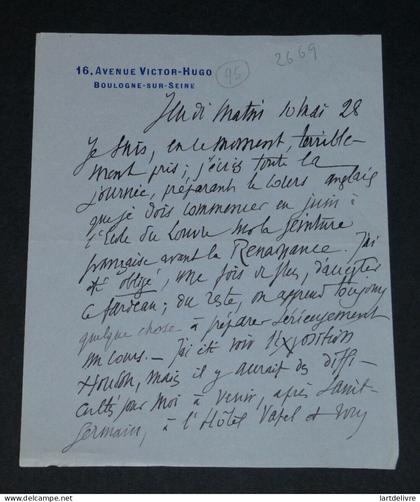 16, AVENUE VICTOR-HUGO
BOULOGNE-SUR-SEINE
95
2669
Jeudi matin 10 mai 28
Je suis, en ce moment, terrible-
ment pris ; j'écris toute la
journée, préparant le cours anglais
que je dois commencer en juin à
l'École du Louvre sur la peinture
française avant la Renaissance. J'ai
été obligé, une fois de plus, d'accepter
ce fardeau ; du reste, on apprend toujours
quelque chose à préparer sérieusement
un cours. – J'ai été voir l'Exposition
Houdon, mais il y aurait des diffi-
cultés pour moi à venir, après Saint-
Germain, à l'Hôtel et
© lartdelivre | delcampe.net